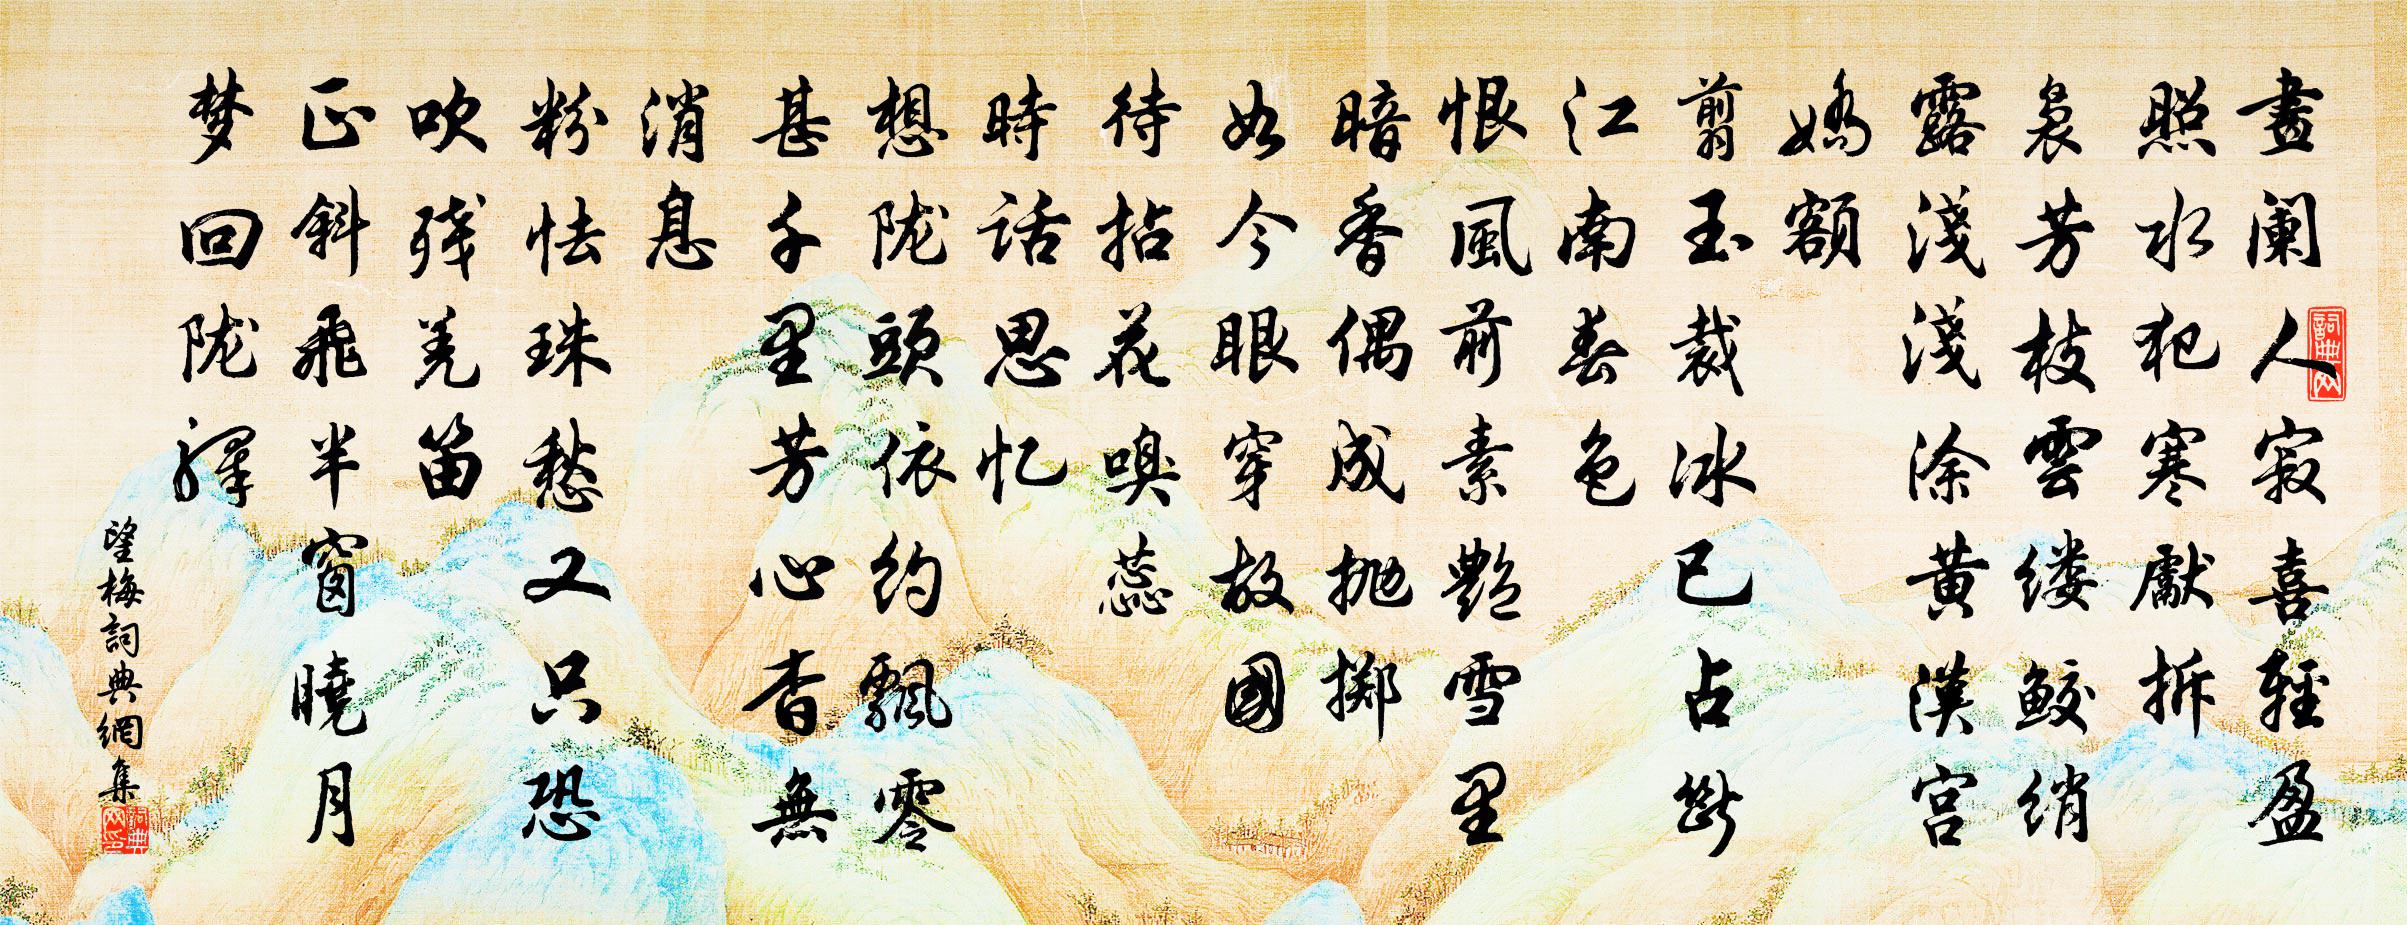 畫阑人寂喜輕盈
照水犯寒獻拆
袅芳枝雲缕鲛绡
露淺淺涂黄漢宫
嬌額
剪玉裁冰已占斷
江南春色
恨風前素艷雪里
暗香偶成抛掷
如今眼穿故國
待拈花嗅蕊
時話思忆
想陇頭依约飄零
甚千里芳心杳無
消息
粉怯珠愁又只恐
吹残羌笛
正斜飛半窗曉月
梦回陇驛
望梅詞典網集
詞典网
詞典网印